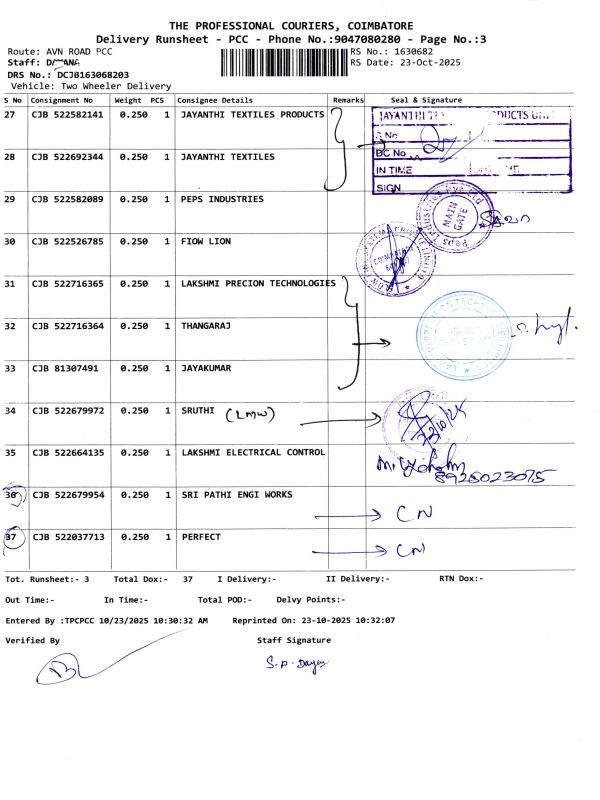 THE PROFESSIONAL COURIERS, COIMBATORE
Delivery Runsheet - PCC - Phone No.:9047080280 - Page No.:3
Route: AVN ROAD PCC
RS No.: 1630682
Staff:
RS Date: 23-Oct-2025
DRS No.: DCJB163068203
Vehicle: Two Wheeler Delivery
S No Consignment No Weight PCS Consignee Details Remarks Seal & Signature
27 CJB 522582141 0.250 1 JAYANTHI TEXTILES PRODUCTS
JAYANTHI DUCTS UNIT
S.No
28 CJB 522692344 0.250 1 JAYANTHI TEXTILES
DC No
IN TIME
SIGN
29 CJB 522582089 0.250 1 PEPS INDUSTRIES
Peps Industries Pvt Ltd
MAIN GATE
30 CJB 522526785 0.250 1 FIOW LION
31 CJB 522716365 0.250 1 LAKSHMI PRECION TECHNOLOGIES
32 CJB 522716364 0.250 1 THANGARAJ
33 CJB 81307491 0.250 1 JAYAKUMAR
34 CJB 522679972 0.250 1 SRUTHI (LMW)
35 CJB 522664135 0.250 1 LAKSHMI ELECTRICAL CONTROL
8925023075
36 CJB 522679954 0.250 1 SRI PATHI ENGI WORKS
CN
37 CJB 522037713 0.250 1 PERFECT
CN
Tot. Runsheet:- 3 Total Dox:- 37 I Delivery:- II Delivery:- RTN Dox:-
Out Time:- In Time:- Total POD:- Delvy Points:-
Entered By :TPCPCC 10/23/2025 10:30:32 AM Reprinted On: 23-10-2025 10:32:07
Verified By Staff Signature